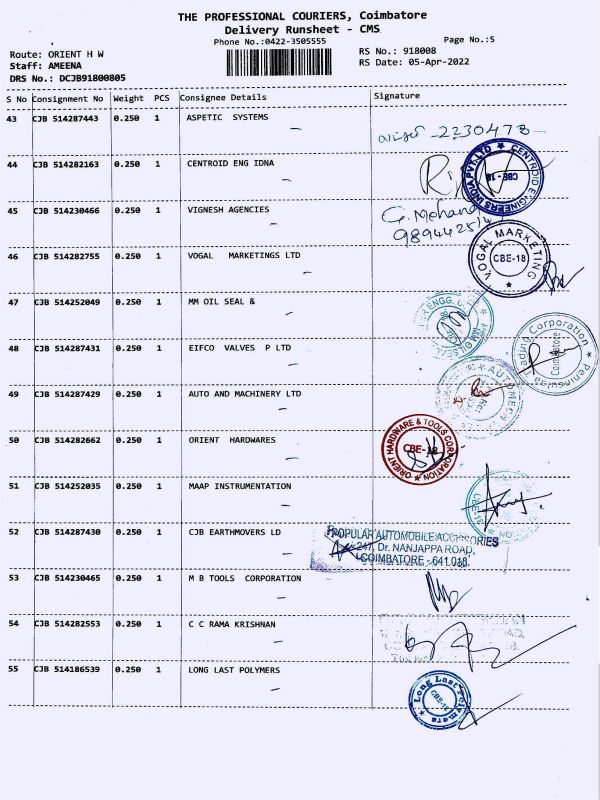 THE PROFESSIONAL COURIERS, Coimbatore
Delivery Runsheet - CMS
Phone No.:0422-3505555
Page No.:5
Route: ORIENT H W
RS No.: 918008
Staff: AMEENA
RS Date: 05-Apr-2022
DRS No.: DCJB91800805
S No Consignment No Weight PCS Consignee Details Signature
43 CJB 514287443 0.250 1 ASPETIC SYSTEMS
2230473
44 CJB 514282163 0.250 1 CENTROID ENG IDNA
CENTROID ENGINEERS INDIA PVT.LTD
CBE-18
45 CJB 514230466 0.250 1 VIGNESH AGENCIES
G. Mohan
46 CJB 514282755 0.250 1 VOGAL MARKETINGS LTD
VOGAL MARKETING
CBE-18
47 CJB 514252049 0.250 1 MM OIL SEAL &
48 CJB 514287431 0.250 1 EIFCO VALVES P LTD
Peninsular Trading Corporation
Coimbatore
49 CJB 514287429 0.250 1 AUTO AND MACHINERY LTD
50 CJB 514282662 0.250 1 ORIENT HARDWARES
ORIENT HARDWARE & TOOLS CORPORATION
CBE-18
51 CJB 514252035 0.250 1 MAAP INSTRUMENTATION
52 CJB 514287430 0.250 1 CJB EARTHMOVERS LD
POPULAR AUTOMOBILE ACCESSORIES
247, Dr. NANJAPPA ROAD,
COIMBATORE - 641 018.
53 CJB 514230465 0.250 1 M B TOOLS CORPORATION
54 CJB 514282553 0.250 1 C C RAMA KRISHNAN
55 CJB 514186539 0.250 1 LONG LAST POLYMERS
Long Last Polymers
CBE-18